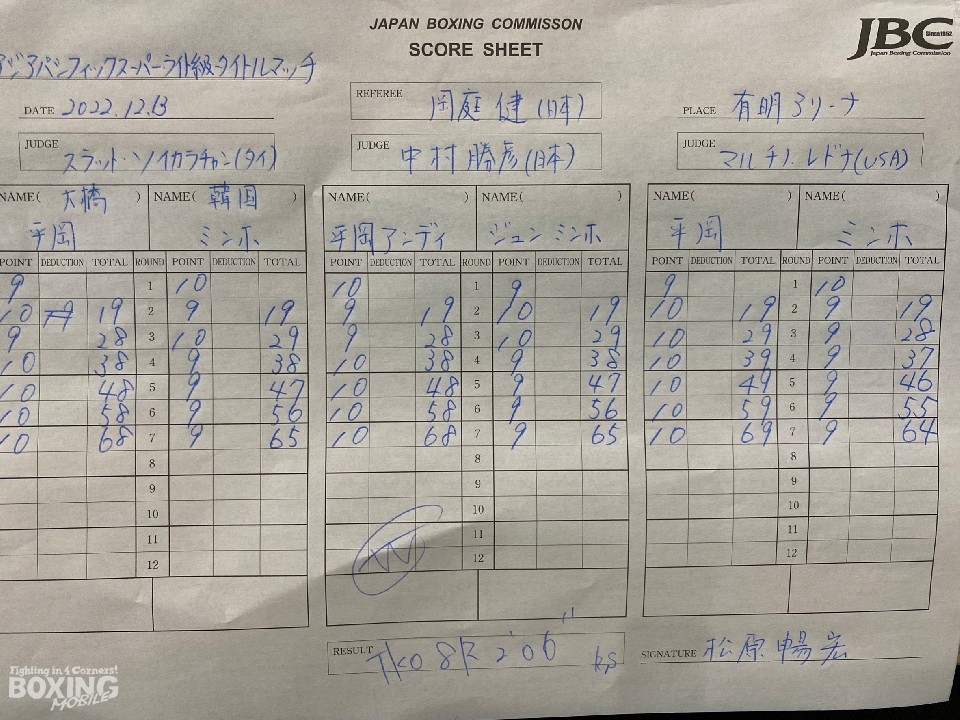 JAPAN BOXING COMMISSON
SCORE SHEET
JBC
Since1952
Japan Boxing Commission
アジアパシフィックスーパーライト級タイトルマッチ
DATE 2022.12.13
REFEREE 岡庭 健(日本)
PLACE 有明アリーナ
JUDGE スラット・ソイカラチャン(タイ)
JUDGE 中村 勝彦(日本)
JUDGE マルチノ・レドナ(USA)
NAME( 大橋 ) NAME( 韓国 ) NAME( ) NAME( ) NAME( ) NAME( )
平岡 ミンホ 平岡アンディ ジュン ミンホ 平岡 ミンホ
POINT DEDUCTION TOTAL ROUND POINT DEDUCTION TOTAL POINT DEDUCTION TOTAL ROUND POINT DEDUCTION TOTAL POINT DEDUCTION TOTAL ROUND POINT DEDUCTION TOTAL
9 1 10 10 1 9 9 1 10
10 19 2 9 19 9 19 2 10 19 10 19 2 9 19
9 28 3 10 29 9 28 3 10 29 10 29 3 9 28
10 38 4 9 38 10 38 4 9 38 10 39 4 9 37
10 48 5 9 47 10 48 5 9 47 10 49 5 9 46
10 58 6 9 56 10 58 6 9 56 10 59 6 9 55
10 68 7 9 65 10 68 7 9 65 10 69 7 9 64
8 8 8
9 9 9
10 10 10
11 11 11
12 12 12
RESULT TKO 8R 2'06"
SIGNATURE 松原 暢宏
Fighting in 4 Corners!
BOXING
MOBILE